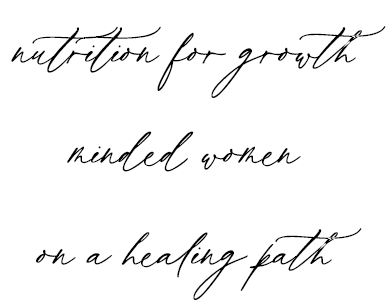 nutrition for growth
minded women
on a healing path